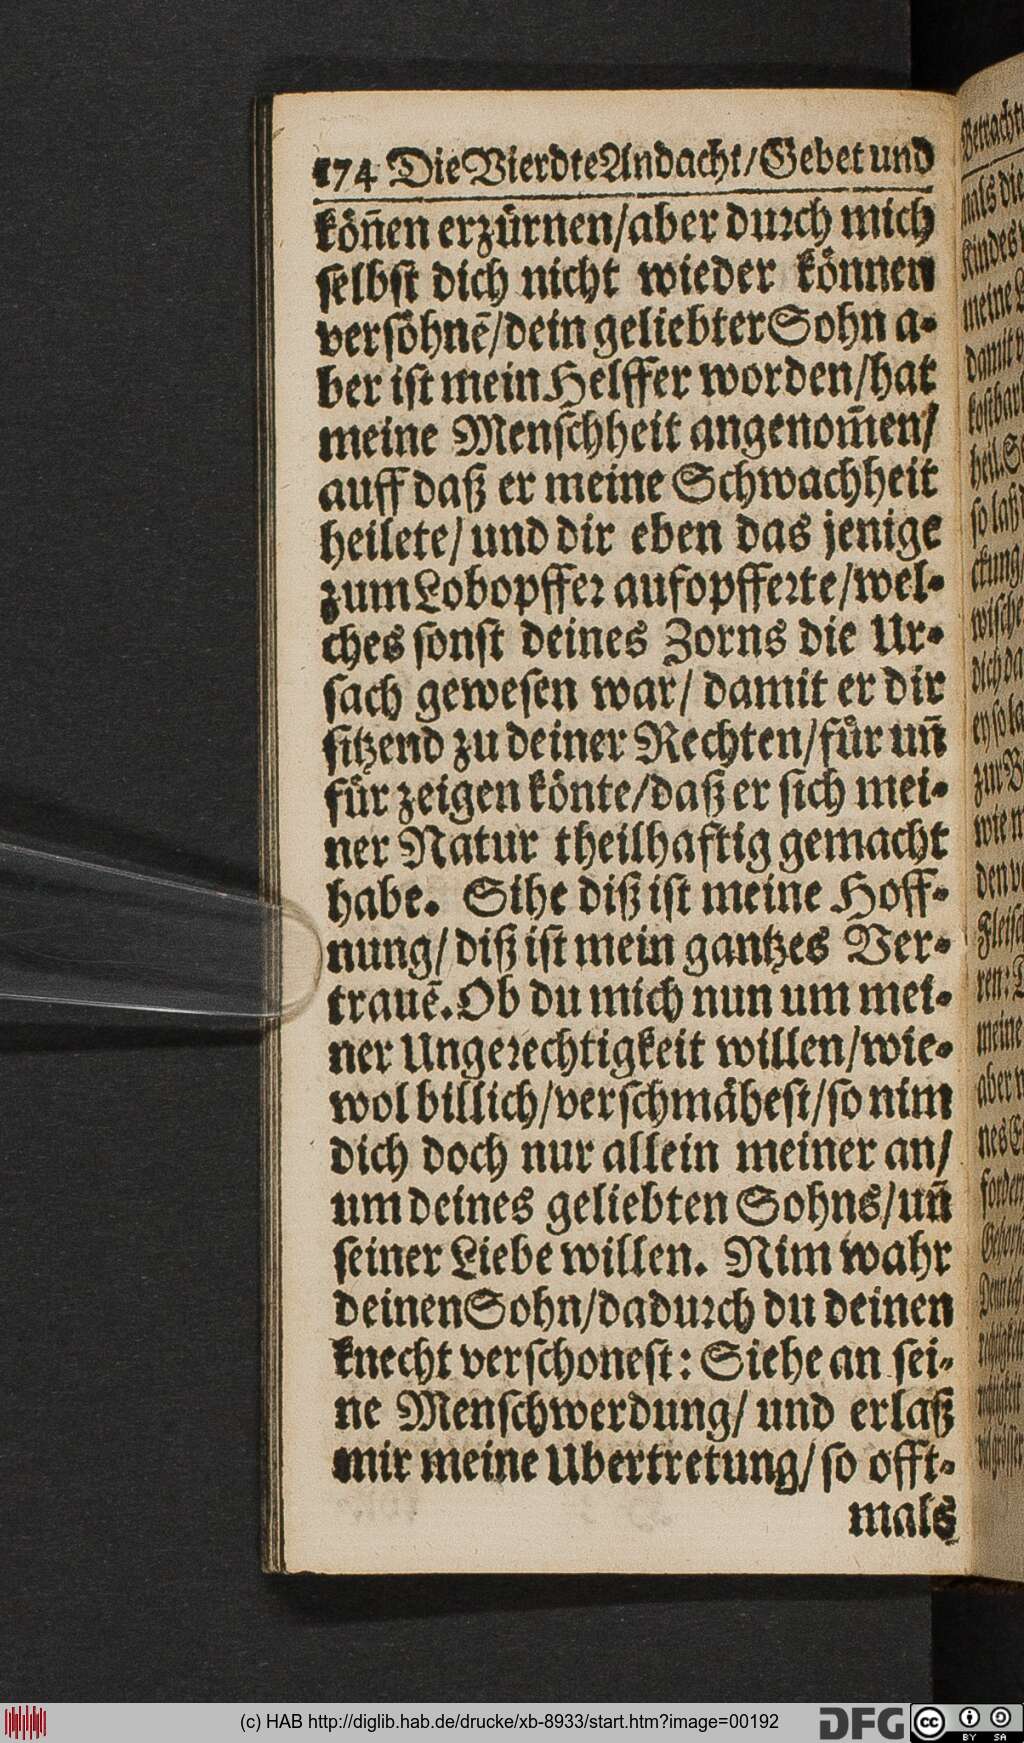 174 Die Vierdte Andacht/Gebet und
köñen erzürnen/aber durch mich
selbst dich nicht wieder können
versöhnē/dein geliebter Sohn a-
ber ist mein Helffer worden/hat
meine Menschheit angenom̃en/
auff daß er meine Schwachheit
heilete/ und dir eben das jenige
zum Lobopffer aufopfferte/wel-
ches sonst deines Zorns die Ur-
sach gewesen war/ damit er dir
sitzend zu deiner Rechten/fuͤr uñ
fuͤr zeigen könte/daß er sich mei-
ner Natur theilhaftig gemacht
habe. Sihe diß ist meine Hoff-
nung/ diß ist mein gantzes Ver-
trauē. Ob du mich nun um mei-
ner Ungerechtigkeit willen/wie-
wol billich/verschmähest/so nim
dich doch nur allein meiner an/
um deines geliebten Sohns/uñ
seiner Liebe willen. Nim wahr
deinen Sohn/dadurch du deinen
knecht verschonest: Siehe an sei-
ne Menschwerdung/ und erlaß
mir meine Ubertretung/ so offt-
mals
(c) HAB http://diglib.hab.de/drucke/xb-8933/start.htm?image=00192
DFG
cc BY SA